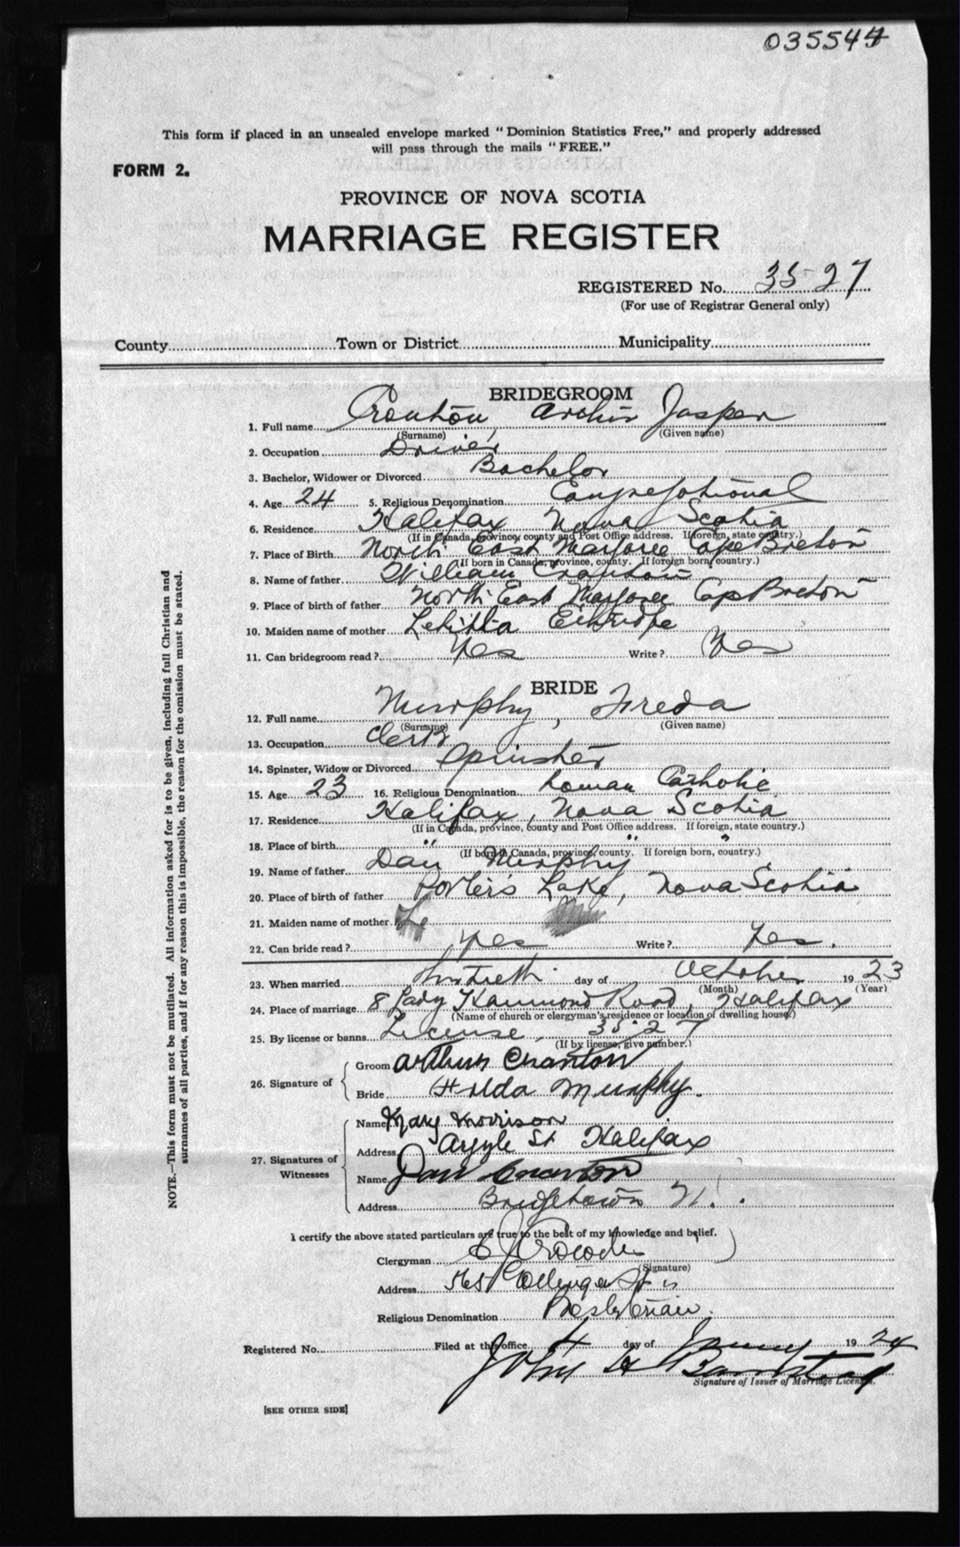 035544
This form if placed in an unsealed envelope marked "Dominion Statistics Free," and properly addressed
will pass through the mails "FREE."
FORM 2.
PROVINCE OF NOVA SCOTIA
MARRIAGE REGISTER
REGISTERED No. 3527
(For use of Registrar General only)
County Town or District Municipality
BRIDEGROOM
1. Full name Jasper
(Surname) (Given name)
2. Occupation Driver
3. Bachelor, Widower or Divorced Bachelor
4. Age 24 5. Religious Denomination Congregational
6. Residence Halifax Nova Scotia
(If in Canada, province, county and Post Office address. If foreign, state country.)
7. Place of Birth North East Margaree Cape Breton
(If born in Canada, province, county. If foreign born, country.)
8. Name of father William
9. Place of birth of father North East Margaree Cap Breton
10. Maiden name of mother
11. Can bridegroom read? Yes Write? Yes
BRIDE
12. Full name Murphy, Freda
(Surname) (Given name)
13. Occupation Clerk
14. Spinster, Widow or Divorced Spinster
15. Age 23 16. Religious Denomination Roman Catholic
17. Residence Halifax, Nova Scotia
(If in Canada, province, county and Post Office address. If foreign, state country.)
18. Place of birth " " "
(If born in Canada, province, county. If foreign born, country.)
19. Name of father Dan Murphy
20. Place of birth of father Porter's Lake, Nova Scotia
21. Maiden name of mother
22. Can bride read? Yes Write? Yes.
23. When married day of October 1923
(Month) (Year)
24. Place of marriage 8 Lady Hammond Road, Halifax
(Name of church or clergyman's residence or location of dwelling house)
25. By license or banns License, 3527
(If by license, give number.)
26. Signature of
Groom Arthur Cranton
Bride Hilda Murphy.
27. Signatures of Witnesses
Name Mary Morrison
Address Argyle St Halifax
Name Dan Cranton
Address Bridgetown N.
I certify the above stated particulars are true to the best of my knowledge and belief.
Clergyman
(Signature)
Address
Religious Denomination Presbyterian.
Registered No. Filed at this office 4 day of January 1924
John H
Signature of Issuer of Marriage Licenses.
[SEE OTHER SIDE]
NOTE.—This form must not be mutilated. All information asked for is to be given, including full Christian and
surnames of all parties, and if for any reason this is impossible, the reason for the omission must be stated.